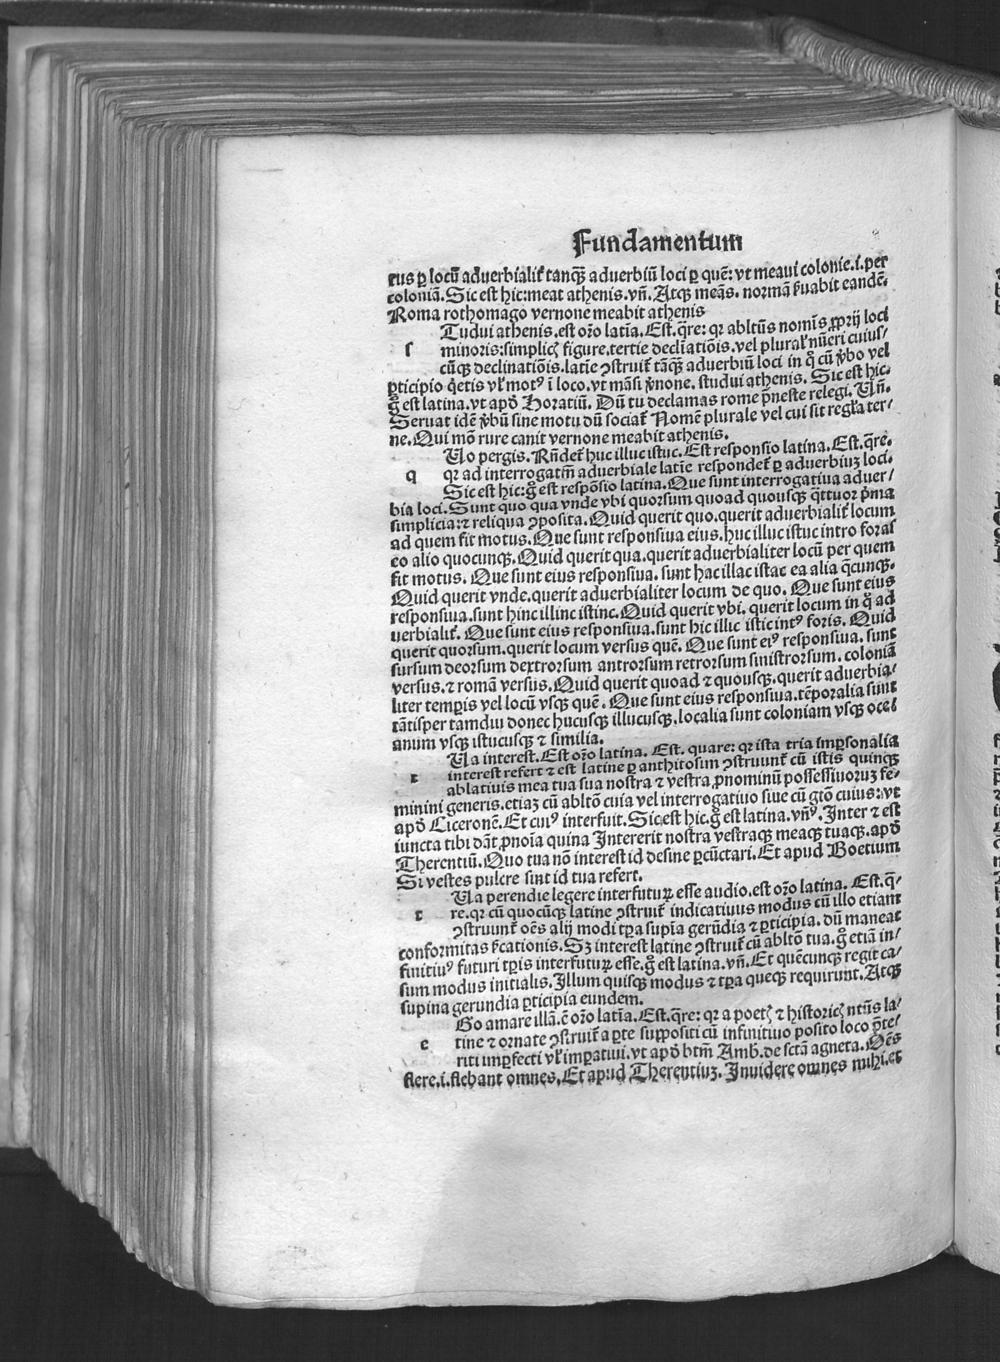 Fundamentum
tus ꝑ locū aduerbialiť tanqꝫ aduerbiū loci ꝑ quē: vt meaui colonie.i.per
coloniā. Sic est hic: meat athenis. vñ. Atqꝫ meās. normā ẜuabit eandē.
Roma rothomago vernone meabit athenis
Tudui athenis. est oŕo latīa. Est. q̄re: qꝛ abltūs nomīs ꝓprij loci
ſ minoris: simplicꝭ figure. tertie declīatiōis. vel pluraľ nūeri cuius/
cūqꝫ declinatiōis. latie ꝯstruiť tāqꝫ aduerbiū loci in q̊ cū v̓bo vel
ꝑticipio q̇etis vľ motꝰ ī loco. vt māsi v̓none. studui athenis. Sic est hic.
g̊ est latina. vt apd̓ Horatiū. Dū tu declamas rome p̄neste relegi. Vñ.
Seruat idē v̓bū sine motu dū sociať Nomē plurale vel cui sit regľa ter/
ne. Qui mō rure canit vernone meabit athenis.
Uo pergis. Rñdeť huc illuc istuc. Est responsio latina. Est. q̄re.
q qꝛ ad interrogatīn aduerbiale latīe respondeť ꝑ aduerbiuꝫ loci.
Sic est hic: g̊ est respōsio latina. Que sunt interrogatiua aduer/
bia loci. Sunt quo qua vnde vbi quorsum quoad quousqꝫ q̄ttuor p̄ma
simplicia: ⁊ reliqua ꝯposita. Quid querit quo. querit aduerbialiť locum
ad quem fit motus. Que sunt responsiua eius. huc illuc istuc intro foras
eo alio quocunqꝫ. Quid querit qua. querit aduerbialiter locū per quem
fit motus. Que sunt eius responsiua. sunt hac illac istac ea alia q̄cunqꝫ.
Quid querit vnde. querit aduerbialiter locum de quo. Que sunt eius
responsiua. sunt hinc illinc istinc. Quid querit vbi. querit locum in q̊ ad
uerbialiť. Que sunt eius responsiua. sunt hic illic istic intꝰ foris. Quid
querit quorsum. querit locum versus quē. Que sunt eiꝰ responsiua. sunt
sursum deorsum dextrorsum antrorsum retrorsum sinistrorsum. coloniā
versus. ⁊ romā versus. Quid querit quoad ⁊ quousqꝫ. querit aduerbia/
liter temꝑis vel locū vsqꝫ quē. Que sunt eius responsiua. tēporalia sunt
tātisper tamdiu donec hucusqꝫ illucusqꝫ. localia sunt coloniam vsqꝫ oce/
anum vsqꝫ istucusqꝫ ⁊ similia.
Ua interest. Est oŕo latina. Est. quare: qꝛ ista tria imꝑsonalia
t interest refert ⁊ est latine ꝑ anthitosim ꝯstruunť cū istis quinqꝫ
ablatiuis mea tua sua nostra ⁊ vestra ꝓnominū possessiuoruꝫ fe/
minini generis. etiaꝫ cū abltō cuia vel interrogatiuo siue cū gtō cuius: vt
apd̓ Ciceronē. Et cuiꝰ interfuit. Sic est hic. g̊ est latina. vñꝰ. Inter ⁊ est
iuncta tibi dāt ꝓnoīa quina Intererit nostra vestraqꝫ meaqꝫ tuaqꝫ. apd̓
Therentiū. Quo tua nō interest id desine ꝑcūctari. Et apud Boetium
Si vestes pulcre sint id tua refert.
Ua perendie legere interfuturꝫ esse audio. est oŕo latina. Est. q̄/
t re. qꝛ cū quocūqꝫ latine ꝯstruiť indicatiuus modus cū illo etiam
ꝯstruunť oēs alij modi tꝑa supīa gerūdia ⁊ ꝑticipia. dū maneat
conformitas ẜcationis. Sꝫ interest latine ꝯstruiť cū abltō tua. g̊ etiā in/
finitiuꝰ futuri tꝑis interfuturꝫ esse. g̊ est latina. vñ. Et quēcunqꝫ regit ca/
sum modus initialis. Illum quisqꝫ modus ⁊ tꝑa queqꝫ requirunt. Atqꝫ
supina gerundia ꝑticipia eundem.
Go amare illā. ē oŕo latīa. Est. q̄re: qꝛ a poetꝭ ⁊ historicꝭ ntūs la/
e tine ⁊ ornate ꝯstruiť a ꝑte suppositi cū infinitiuo posito loco p̄te/
riti imꝑfecti vľ imꝑatiui. vt apd̓ btm̄ Amb. de sctā agneta. Oēs
flere. i. flebant omnes. Et apud Therentiuꝫ. Inuidere omnes mihi. et